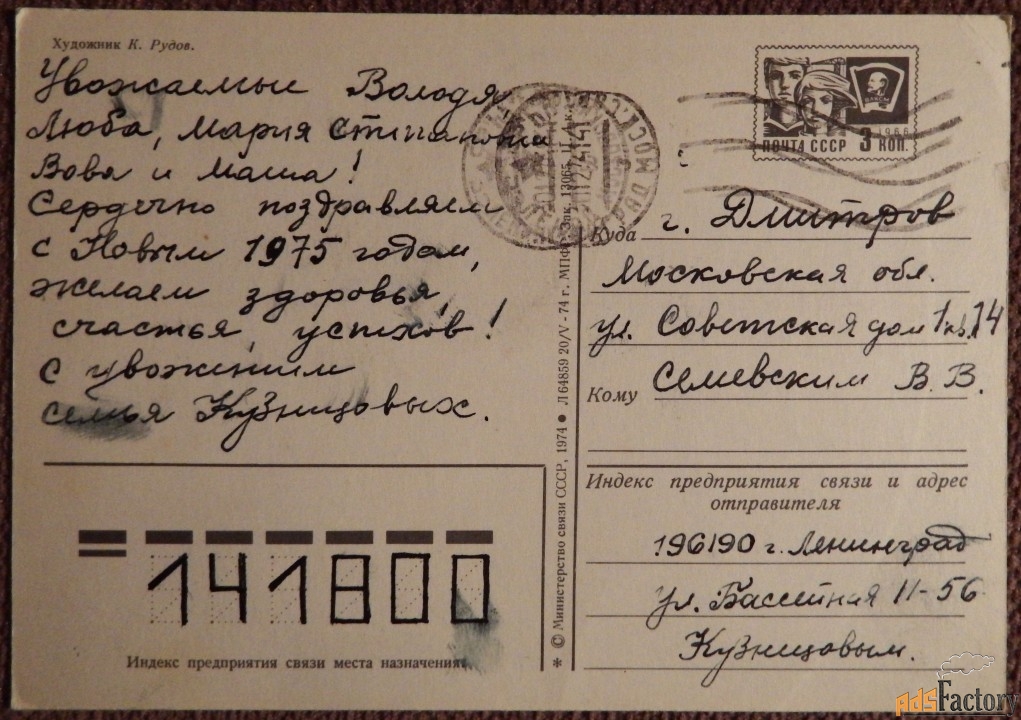 Художник К. Рудов.
Уважаемые Володя,
Люба, Мария Степановна
Вова и Маша!
Сердечно поздравляем
с Новым 1975 годом,
желаем здоровья,
счастья, успехов!
С уважением
семья Кузнецовых.
141800
Индекс предприятия связи места назначения
* © Министерство связи СССР, 1974 ● Л 64859 20/V-74 г. МПФГ Зак. 13065
ВЛКСМ
1966
ПОЧТА СССР 3 КОП.
Куда г. Дмитров
Московская обл.
ул. Советская дом 1 кв. 14
Кому Семевским В. В.
Индекс предприятия связи и адрес
отправителя
196190 г. Ленинград
ул. Бассейная 11-56
Кузнецовым.
AdsFactory